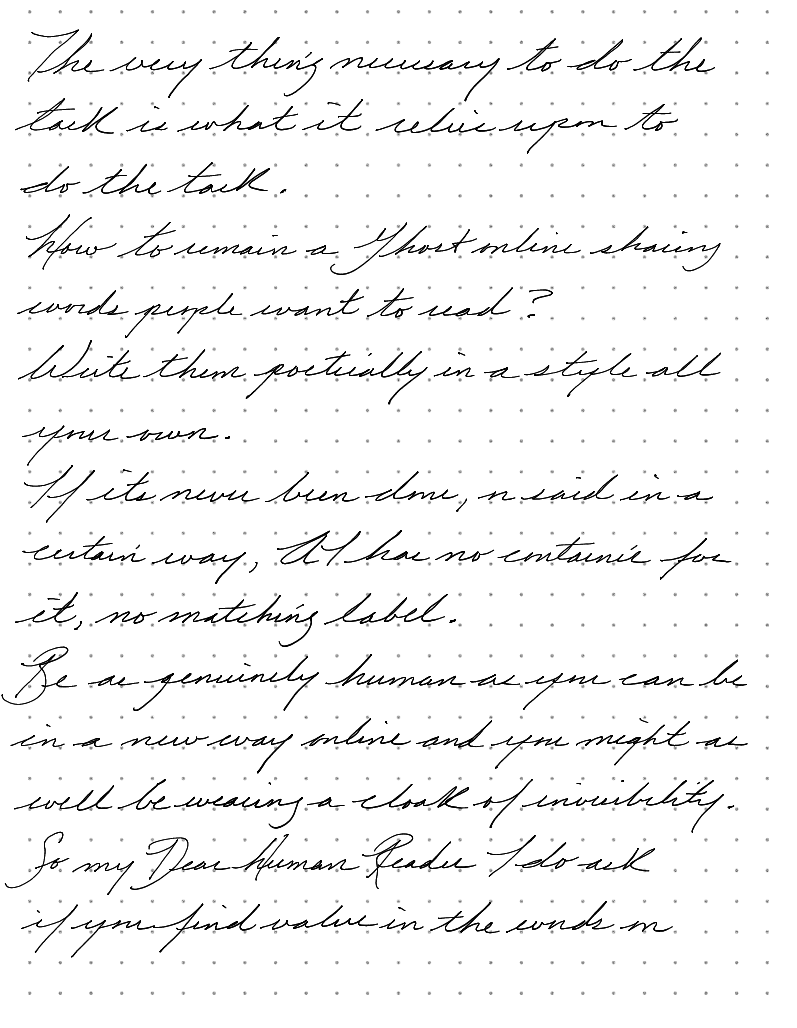 The very thing necessary to do the
task is what it relies upon to
do the task.
How to remain a Ghost online sharing
words people want to read?
Write them poetically in a style all
your own.
If its never been done, or said in a
certain way, AI has no container for
it, no matching label.
Be as genuinely human as you can be
in a new way online and you might as
well be wearing a cloak of invisibility.
So my Dear Human Reader I do ask
if you find value in the words on